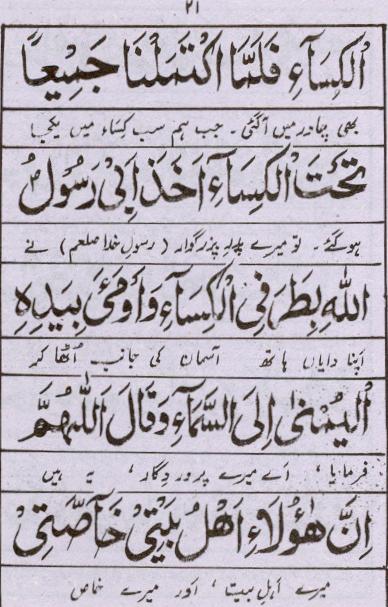 ۲۱
الْكِسَآءِ فَلَمَّا اكْتَمَلْنَا جَمِيْعاً
بھی چادر میں آگئی ۔ جب ہم سب کساء میں یکجا
تَحْتَ الْكِسَآءِ اَخَذَ اَبِیْ رَسُوْلُ
ہوگئے ۔ تو میرے پدر بزرگوار (رسول خدا صلعم) نے
اللهِ بِطَرَفَیِ الْكِسَآءِ وَاَوْمَیَٔ بِيَدِهِ
اپنا دایاں ہاتھ آسمان کی جانب اُٹھا کر
الْيُمْنٰى اِلَى السَّمَآءِ وَقَالَ اَللّٰهُمَّ
فرمایا ، اَے میرے پروردگار ، یہ ہیں
اِنَّ هٰٓؤُلَاءِ اَهْلُ بَيْتِیْ خَآصَّتِیْ
میرے اہل بیت ، اور میرے خاص